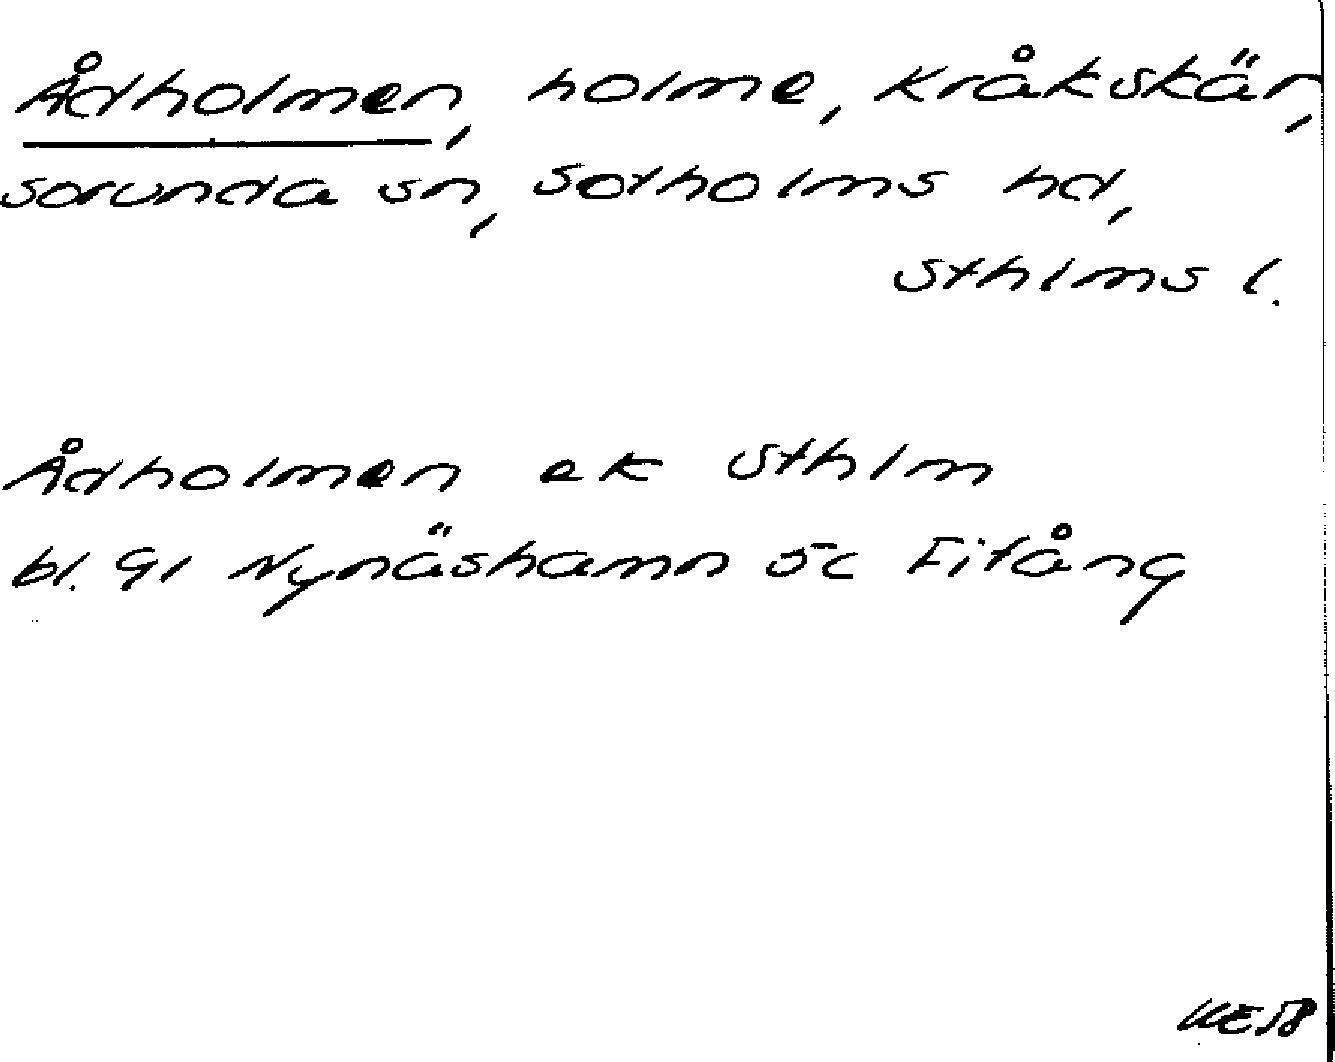 Ådholmen, holme, Kråkskär,
Sorunda sn, Sotholms hd,
Sthlms l.
Ådholmen ek Sthlm
bl. 91 Nynäshamn 5c Fifång